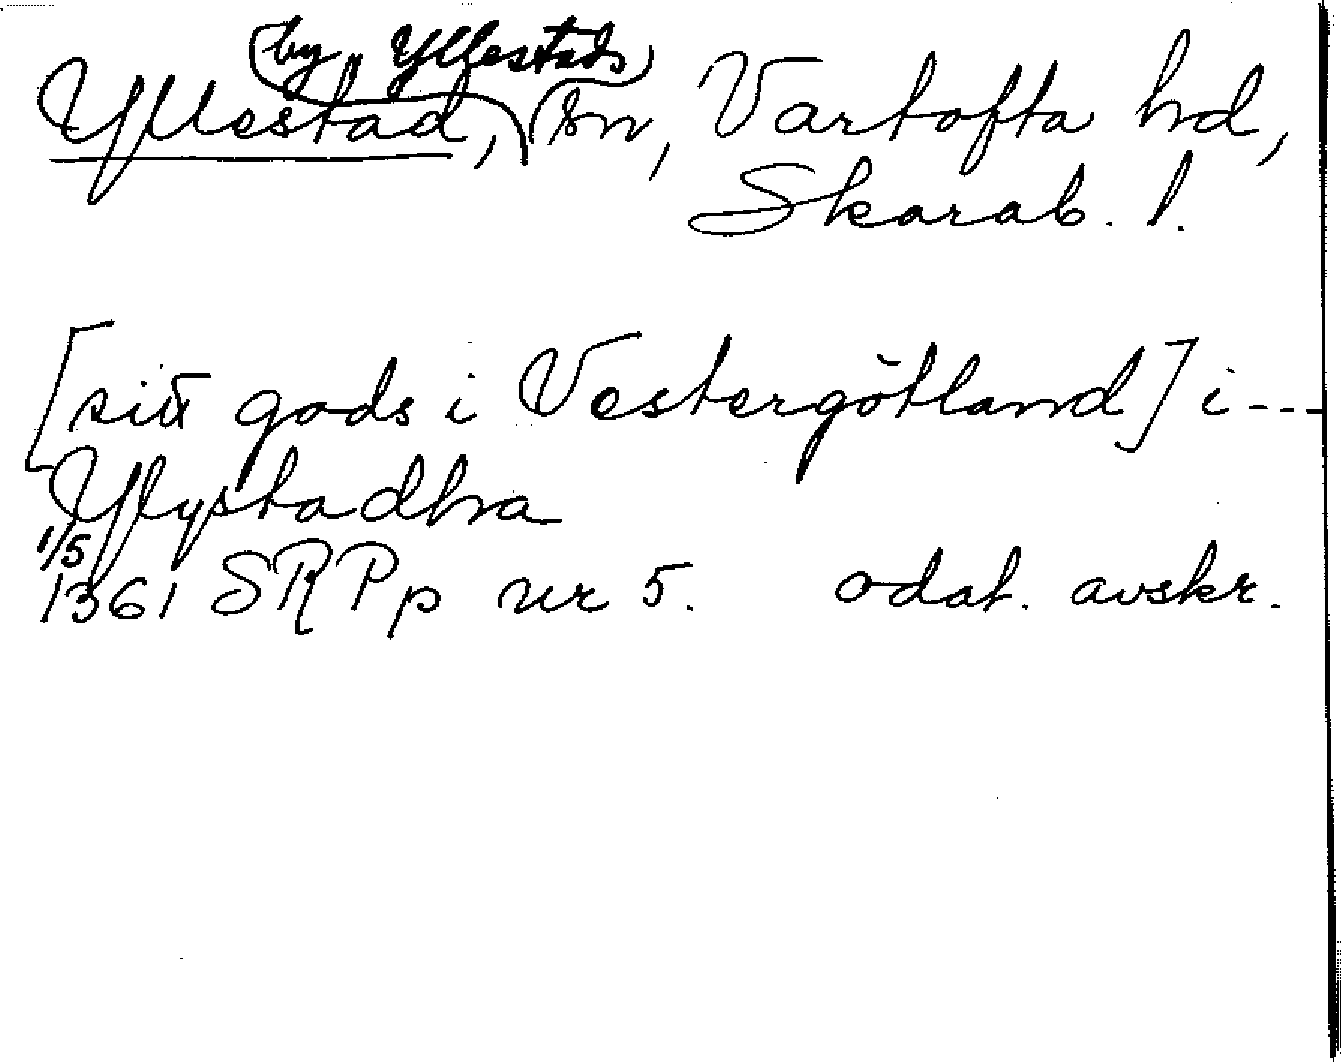 by, Yllestads
Yllestad, sn, Vartofta hd,
Skarab. l.
[sitt gods i Vestergötland] i ---
Ylystadhra
1/5
1361 SRPp nr 5. odat. avskr.